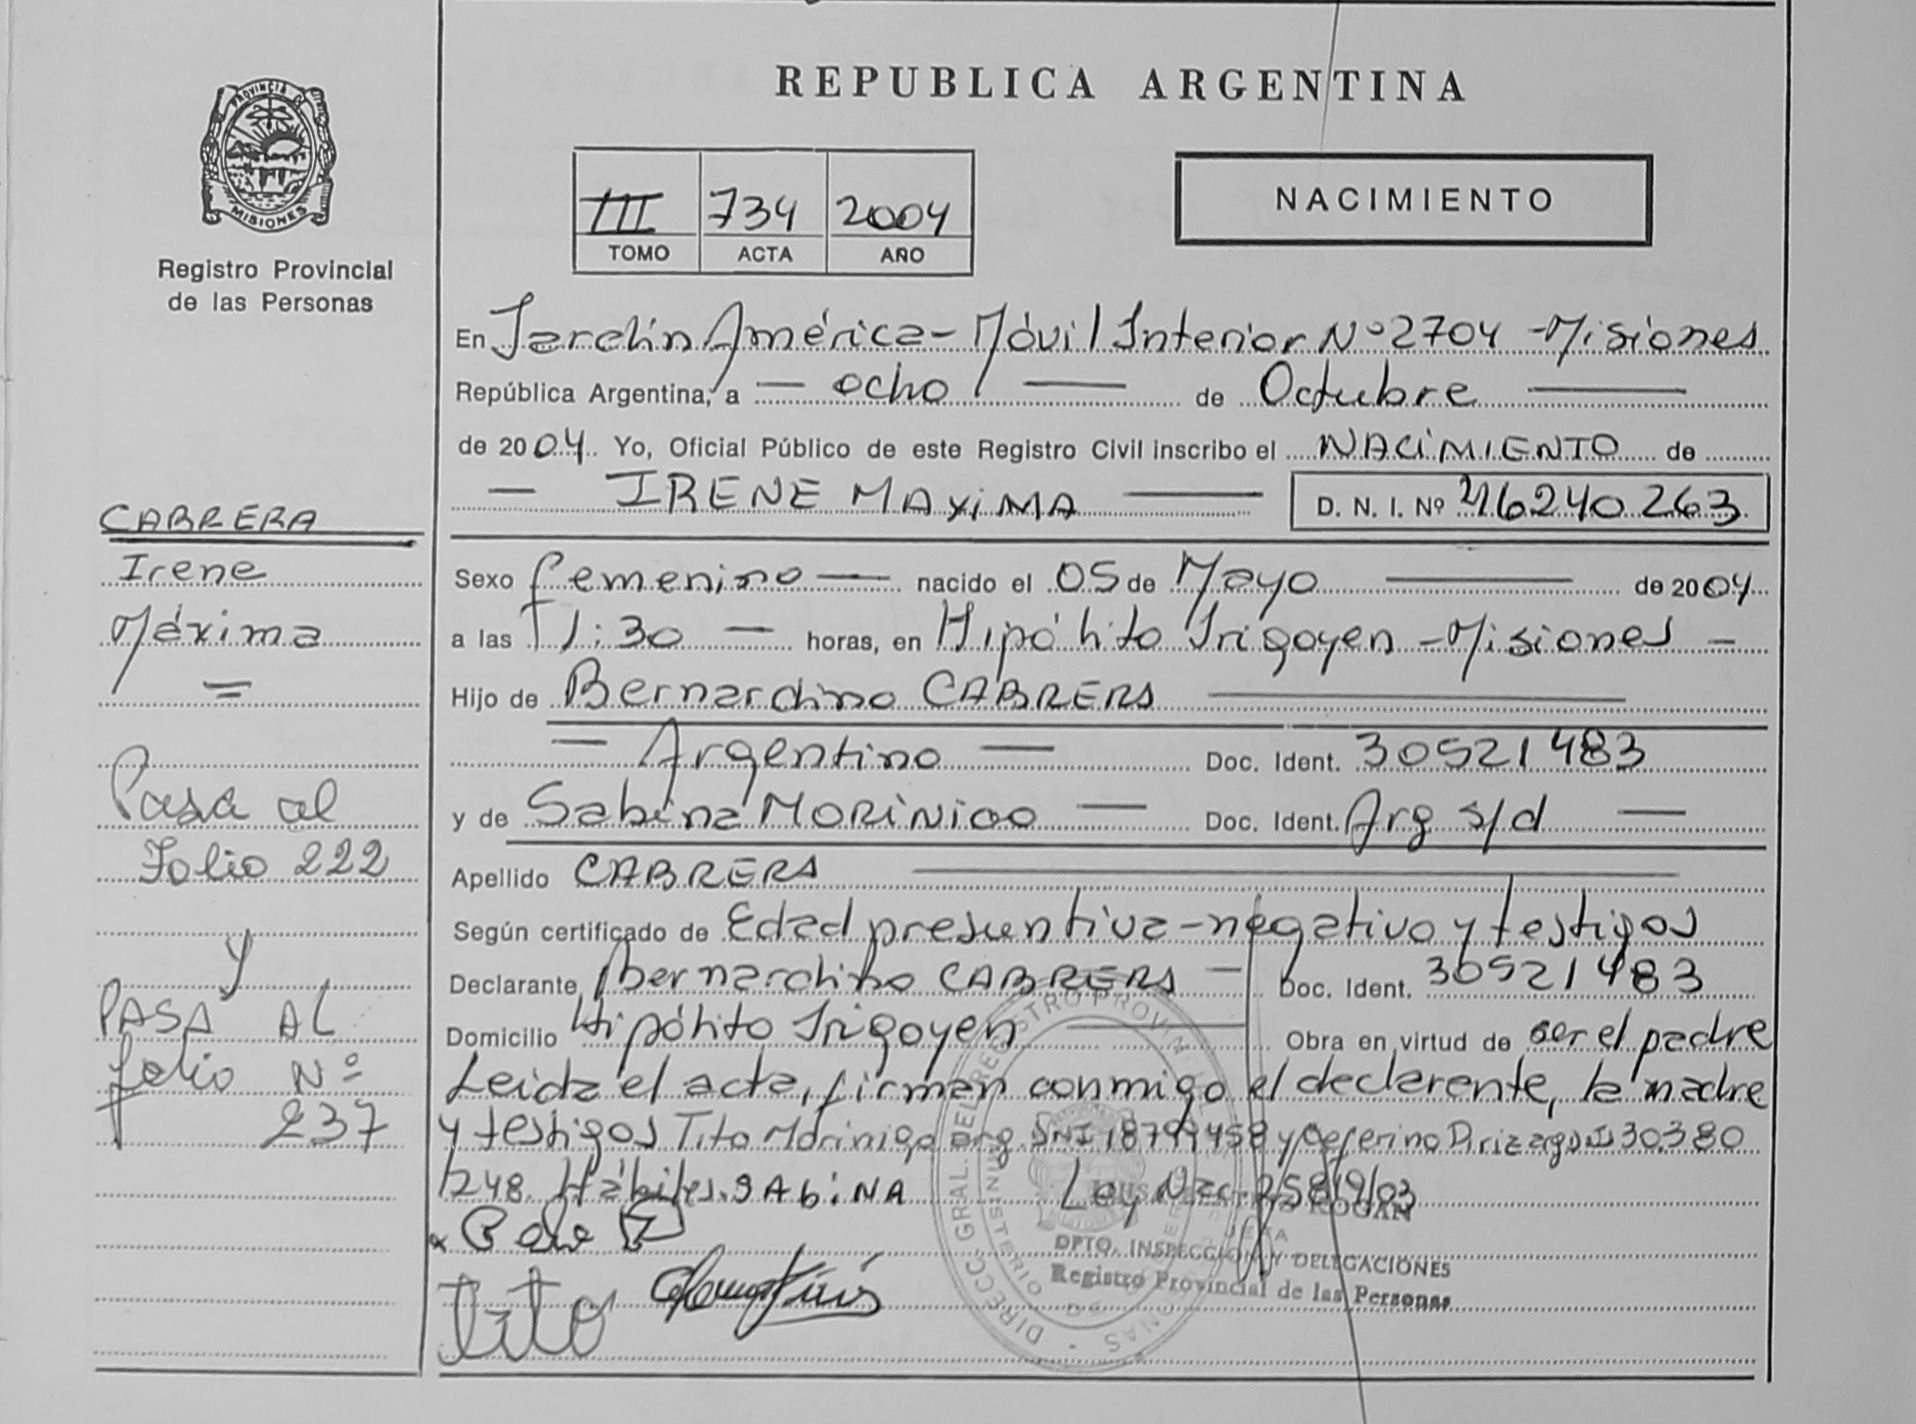 REPUBLICA ARGENTINA
PROVINCIA D
MISIONES
Registro Provincial
de las Personas
III 734 2004
TOMO ACTA AÑO
NACIMIENTO
En Jardín América - Móvil Interior Nº 2704 - Misiones
República Argentina, a — ocho — de Octubre —
de 2004. Yo, Oficial Público de este Registro Civil inscribo el NACIMIENTO de
— IRENE MAXIMA — D. N. I. Nº 46240263
Sexo femenino — nacido el 05 de Mayo — de 2004
a las 11:30 — horas, en Hipólito Irigoyen - Misiones —
Hijo de Bernardino CABRERA —
— Argentino — Doc. Ident. 30521483
y de Sabina MORINIGO — Doc. Ident. Arg s/d —
Apellido CABRERA —
Según certificado de Edad presuntiva - negativo y testigos
Declarante Bernardino CABRERA — Doc. Ident. 30521483
Domicilio Hipólito Irigoyen — Obra en virtud de ser el padre
Leida el acta, firman conmigo el declarante, la madre
y testigos Tito Morinigo arg. DNI 18799458 y Ceferino Diriz arg DNI 30.380
1248. Hábiles. SABiNA Ley Nac. 25819/03
tito
DPTO. INSPECCION Y DELEGACIONES
Registro Provincial de las Personas
CABRERA
Irene
Máxima
=
Pasa al
Folio 222
y
PASA AL
folio Nº
237